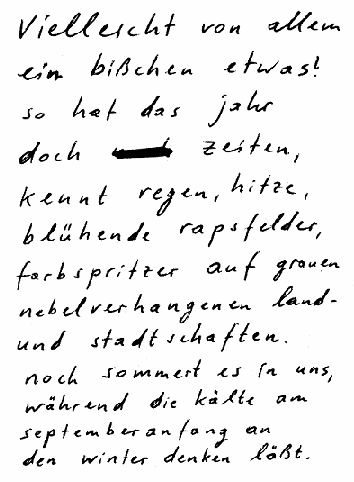 Vielleicht von allem
ein bißchen etwas!
so hat das jahr
doch zeiten,
kennt regen, hitze,
blühende rapsfelder,
farbspritzer auf grauen
nebelverhangenen land-
und stadtschaften.
noch sommert es in uns,
während die kälte am
septemberanfang an
den winter denken läßt.